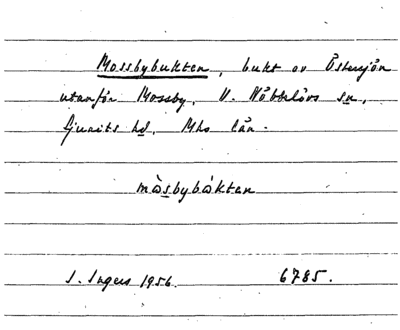 Mossbybukten, bukt av Östersjön
utanför Mossby, V. Nöbbelövs sn,
Ljunits hd, Mhs län.
mòsbybòkten
I. Ingers 1956. 6785.